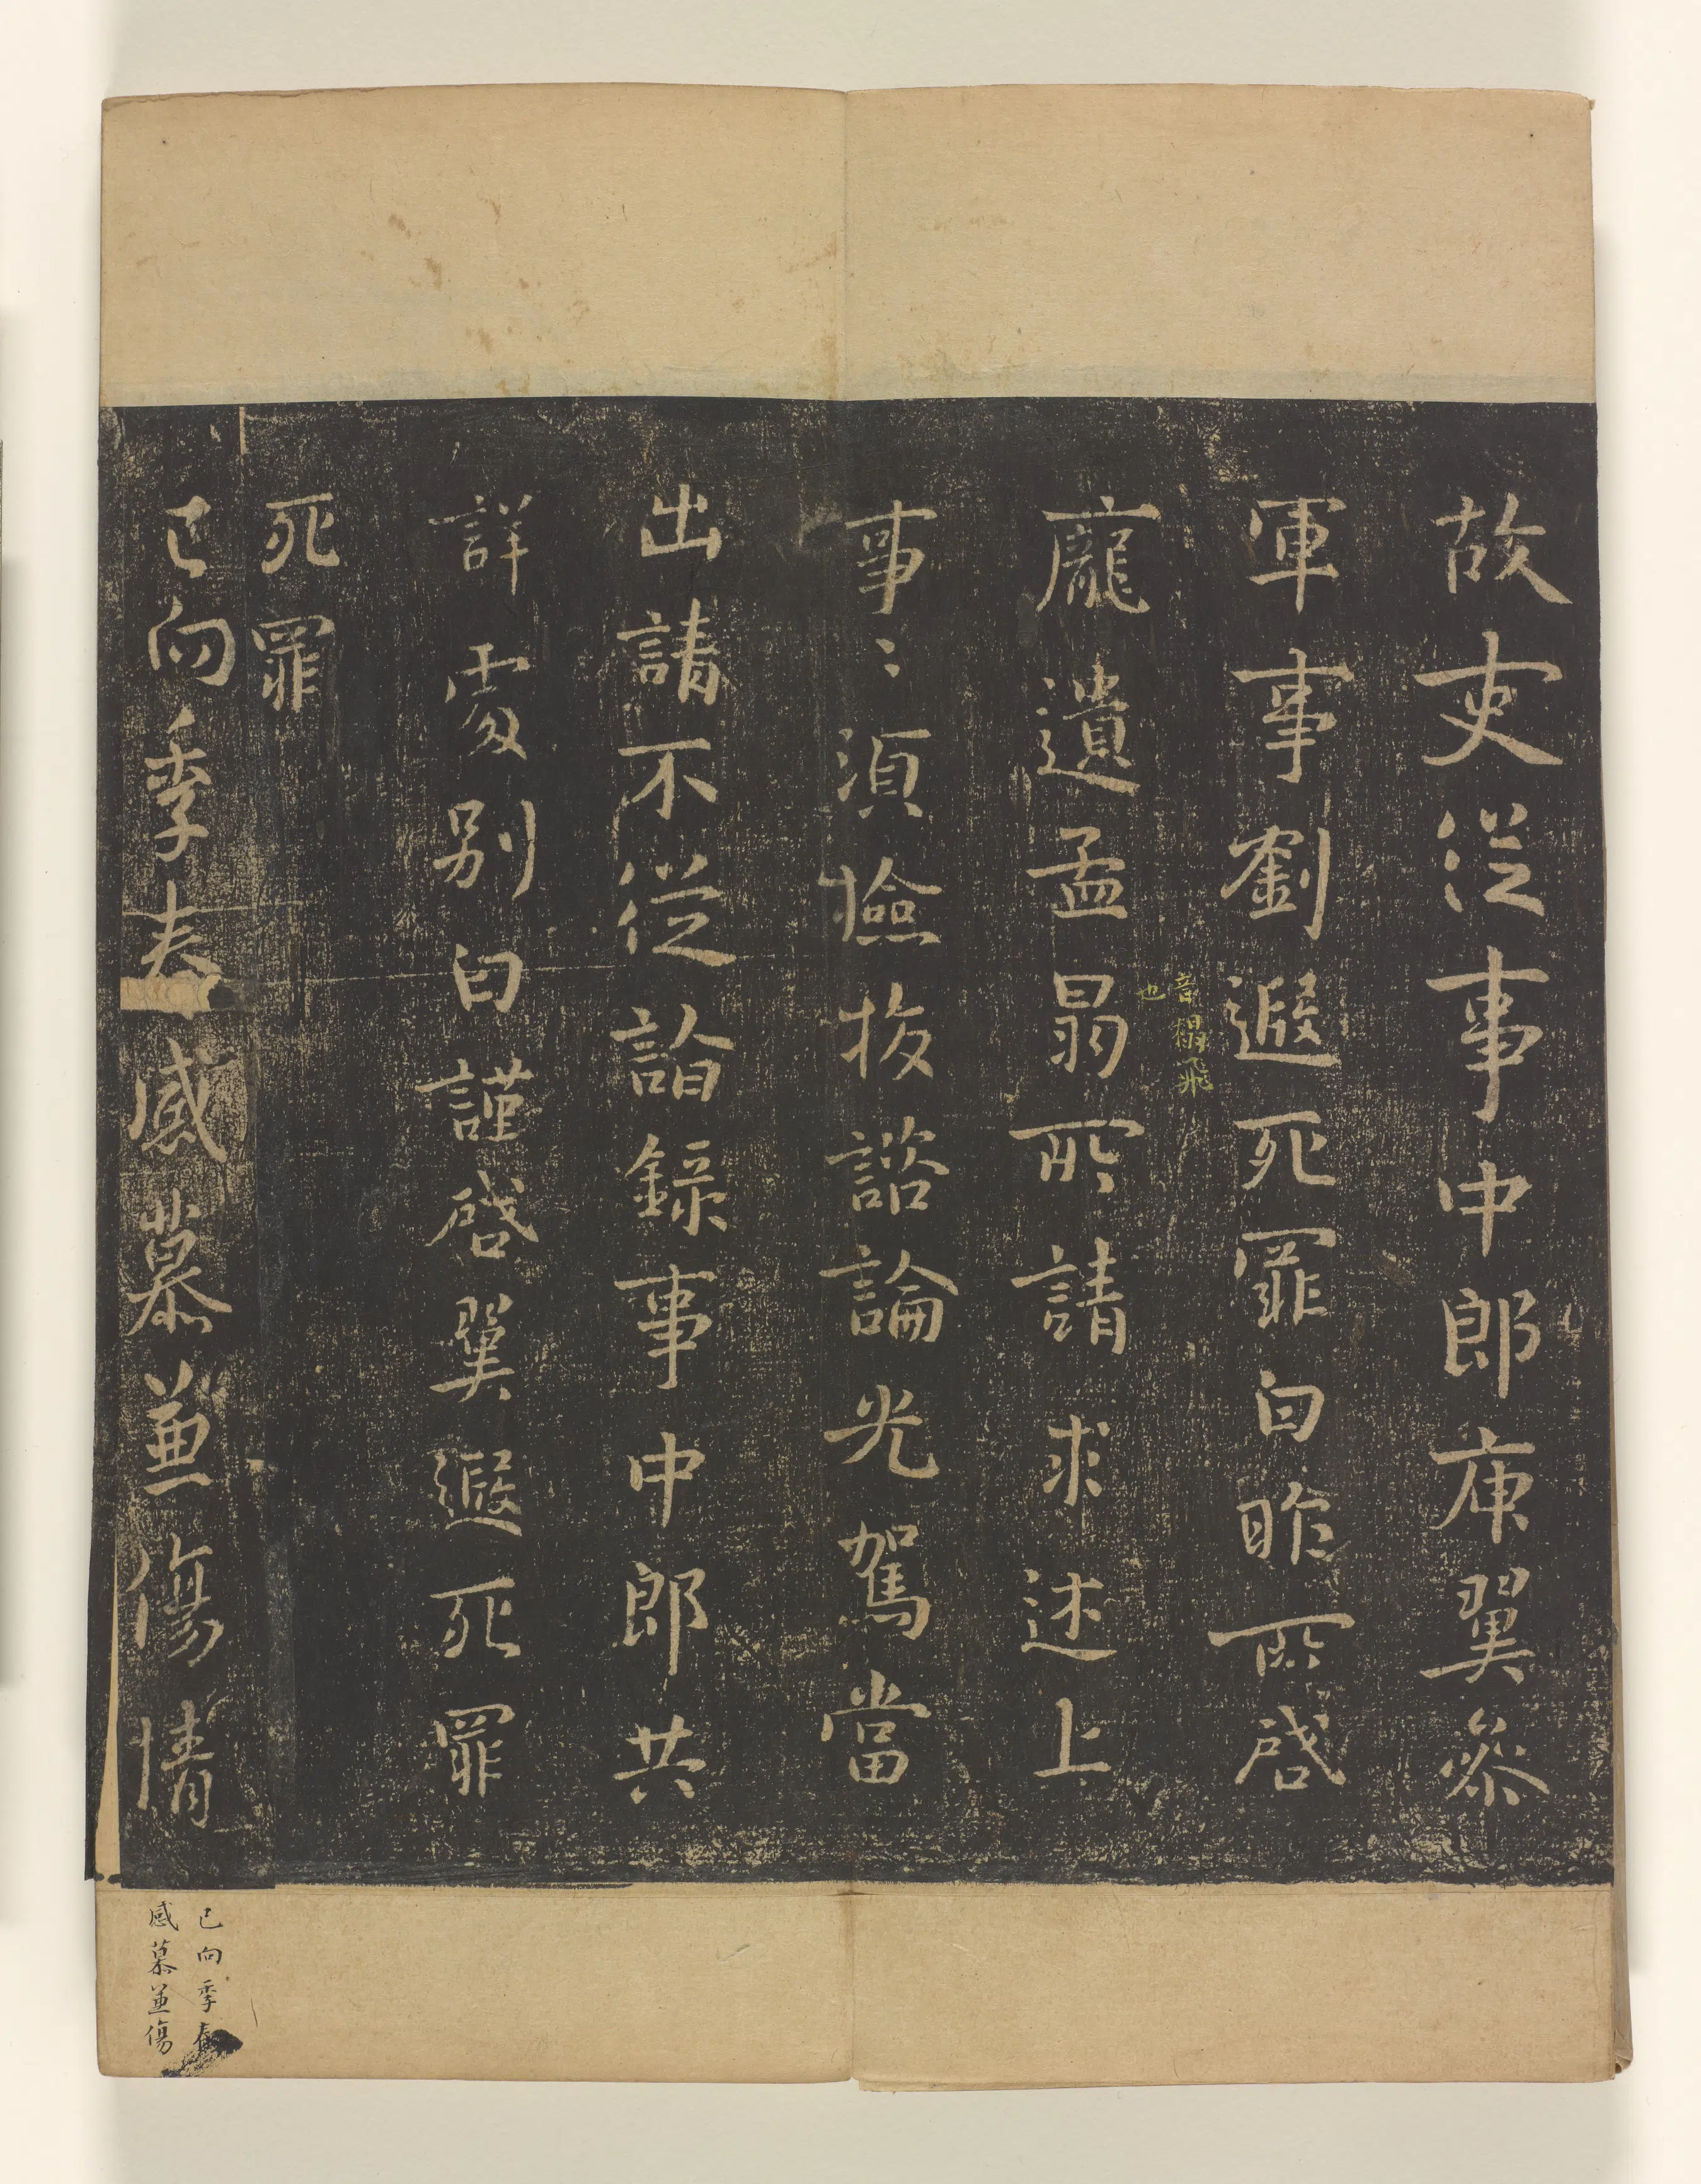 故吏從事中郎庾翼參
軍事劉遐死罪白昨所啓
龐遺孟曷所請求述上
音榻飛
也
事〻須檢挍諮論光駕當
出請不從諮錄事中郎共
詳處別白謹啓翼遐死罪
死罪
已向季春感慕兼傷情
已向季春
感慕兼傷